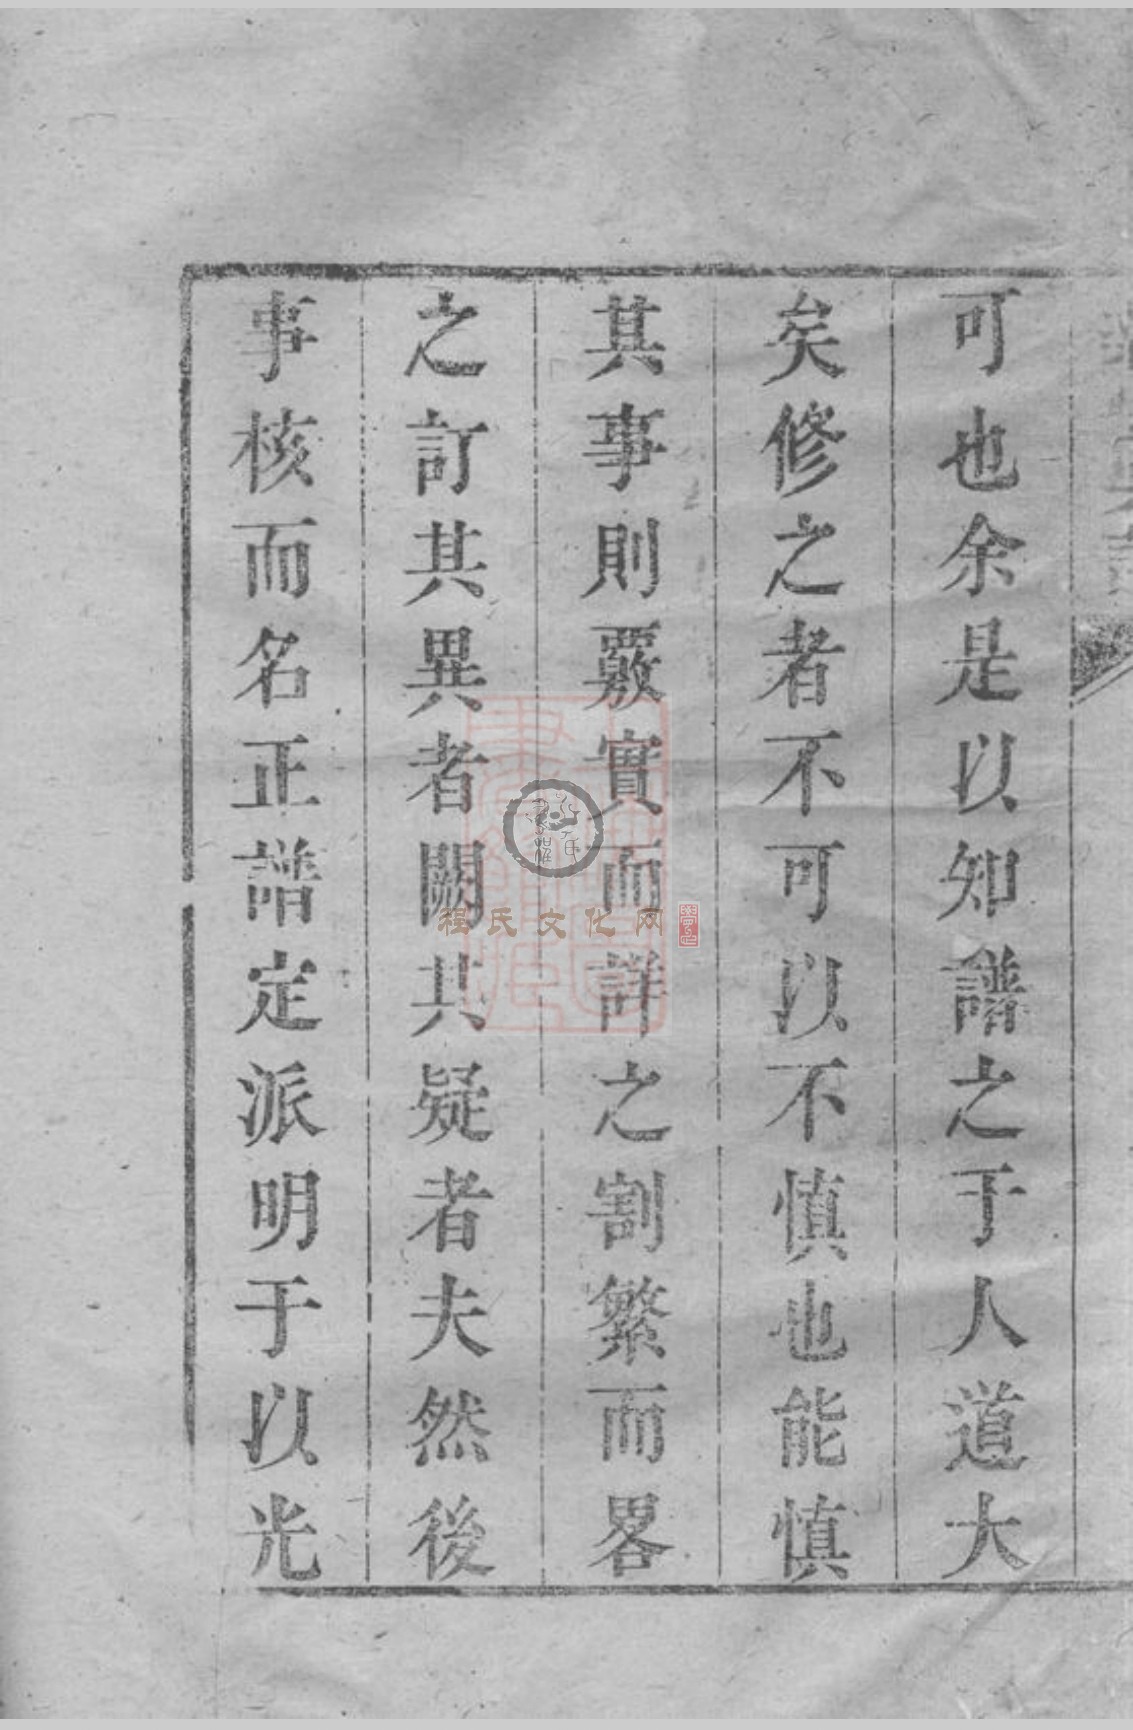 可也余是以知譜之于人道大
矣修之者不可以不慎也能慎
其事則覈實而詳之割繁而畧
之訂其異者闕其疑者夫然後
事核而名正譜定派明于以光
程氏文化网